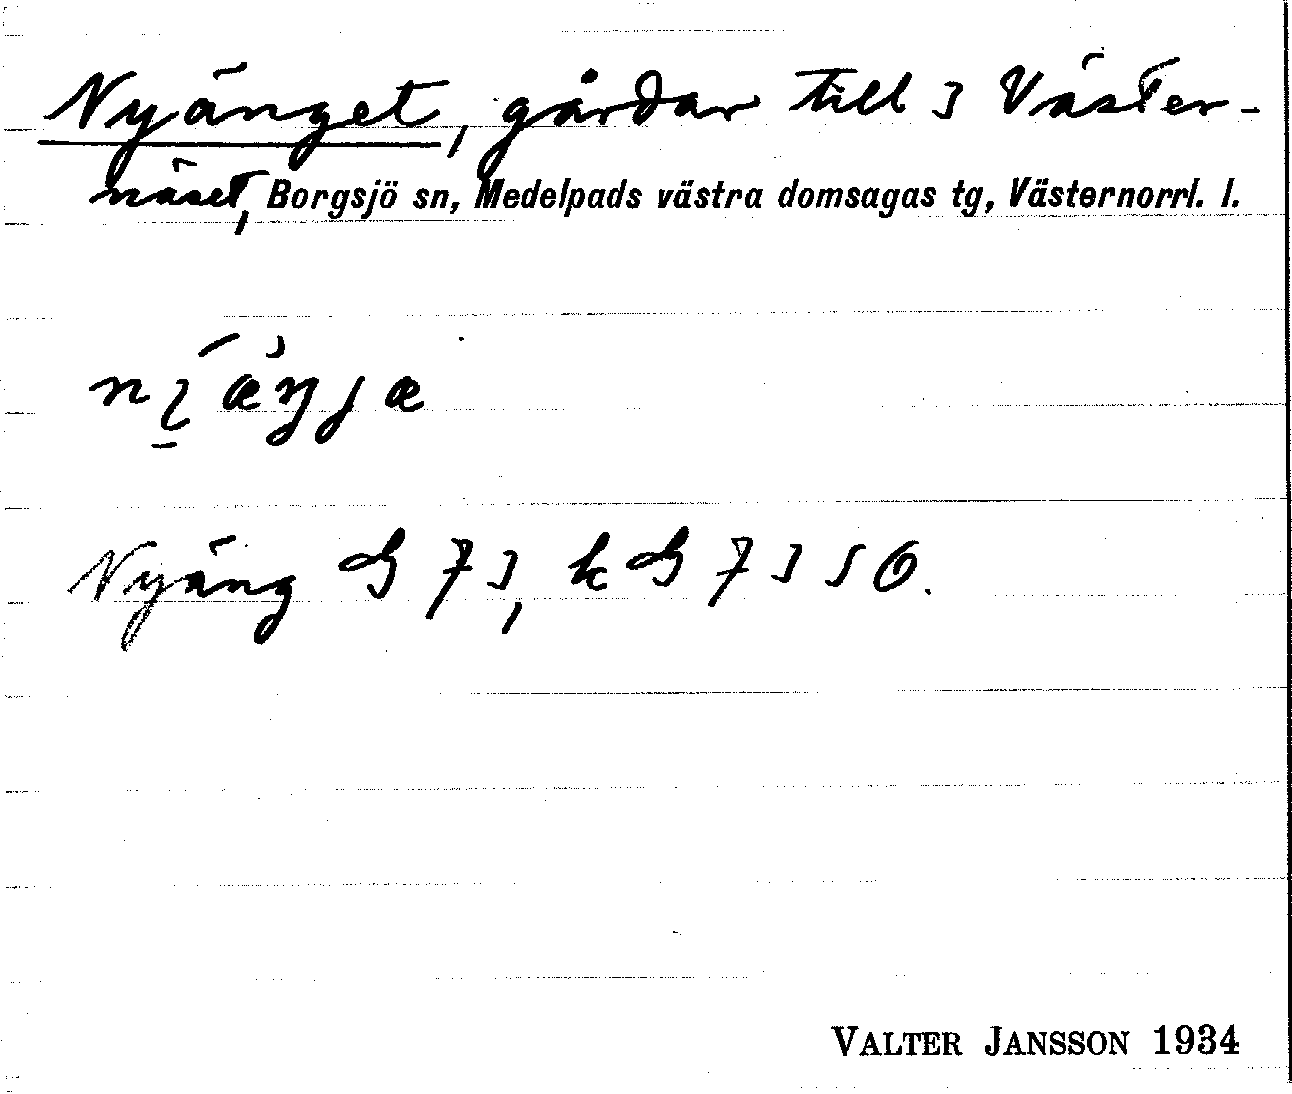 Nyänget, gårdar till 3 Väster-
näset, Borgsjö sn, Medelpads västra domsagas tg, Västernorrl. l.
Nyäng G 73, kG 7350.
VALTER JANSSON 1934